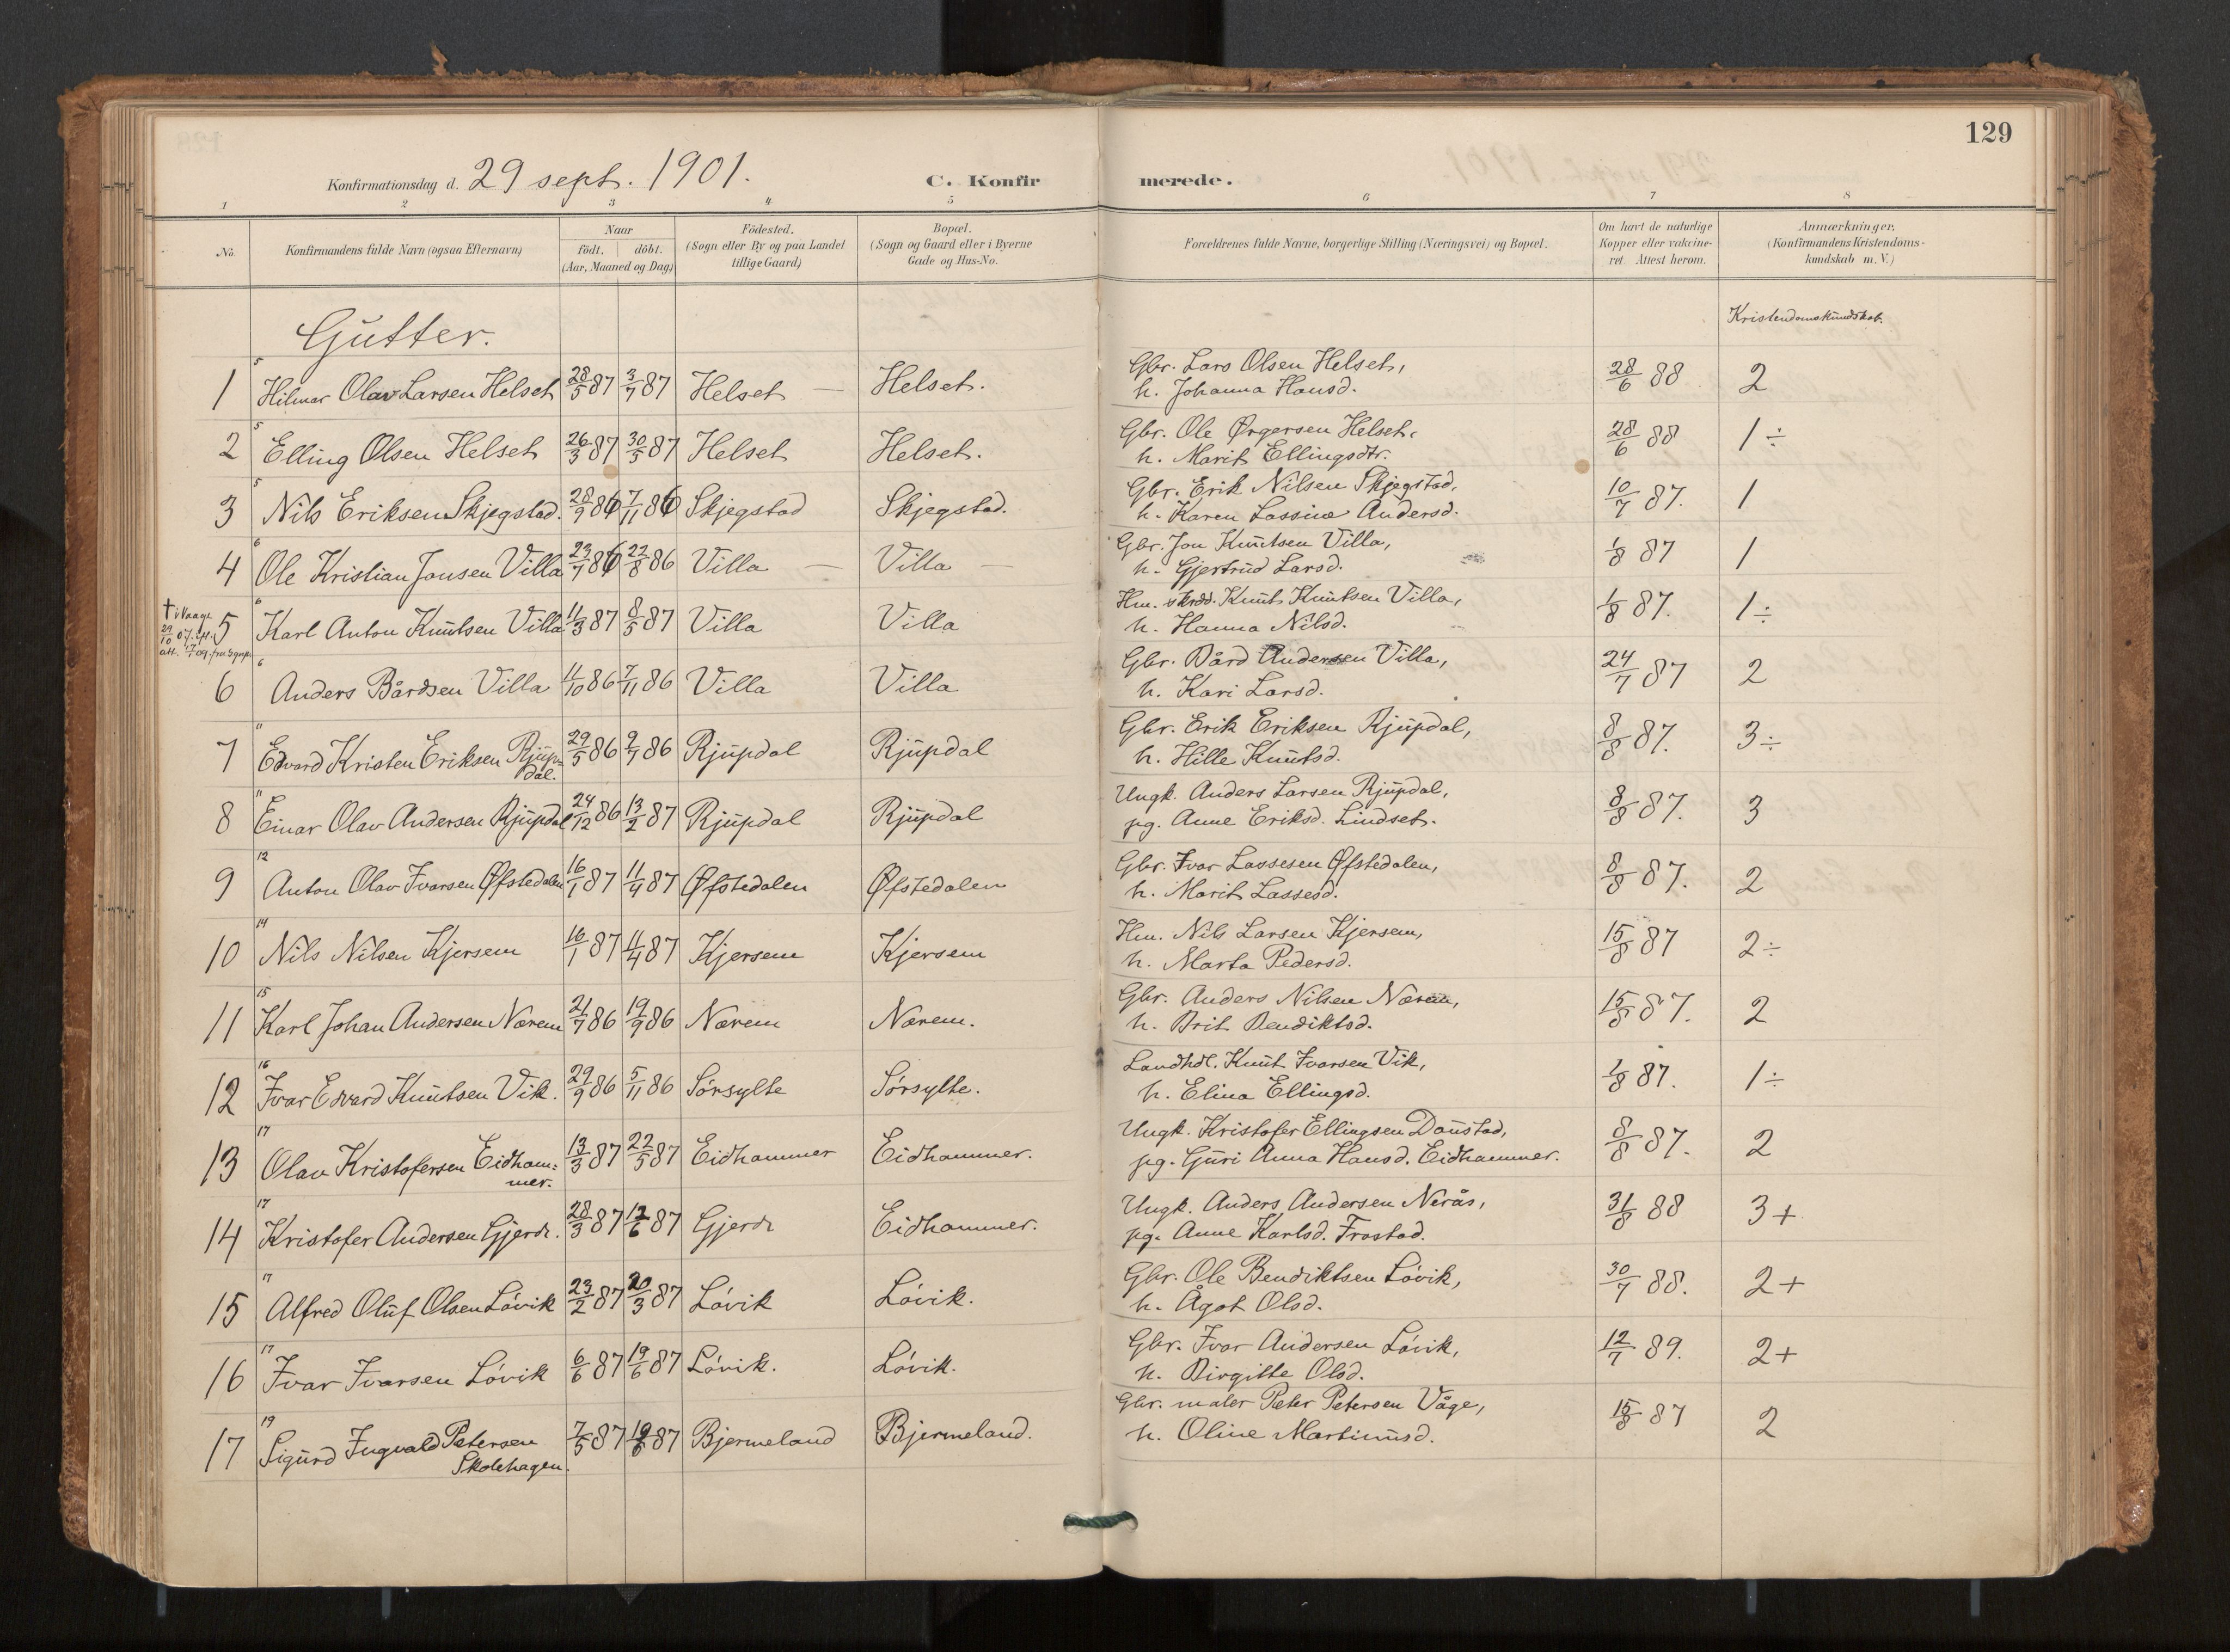 129
Konfirmationsdag d. 29 sept. 1901. C. Konfir merede.
1 2 3 4 5 6 7 8
No. Konfirmandens fulde Navn (ogsaa Efternavn) Naar födt. döbt. (Aar, Maaned og Dag) Födested. (Sogn eller By og paa Landet tillige Gaard) Bopæl. (Sogn og Gaard eller i Byerne Gade og Hus-No. Forældrenes fulde Navne, borgerlige Stilling (Næringsvei) og Bopæl. Om havt de naturlige Kopper eller vakcineret. Attest herom. Anmærkninger. (Konfirmandens Kristendomskundskab m. V.)
Gutter. Kristendomskundskab.
1 5 Hilmar Olav Larsen Helset 28/5 87 3/7 87 Helset — Helset. Gbr. Lars Olsen Helset, 28/6 88 2
h. Johanna Hansd.
2 5 Elling Olsen Helset 26/3 87 30/5 87 Helset Helset. Gbr. Ole Ørgersen Helset, 28/6 88 1÷
h. Marit Ellingsdtr.
3 5 Nils Eriksen Skjegstad. 28/9 86 7/11 86 Skjegstad Skjegstad. Gbr. Erik Nilsen Skjegstad, 10/7 87. 1
h. Karen Lassine Andersd.
4 6 Ole Kristian Jonsen Villa 23/7 86 22/8 86 Villa — Villa — Gbr. Jon Knutsen Villa, 1/8 87 1
h. Gjertrud Larsd.
† i Vaage
29/10 07.
5 6 Karl Anton Knutsen Villa 11/3 87 8/5 87 Villa Villa Hm. skrdd. Knut Knutsen Villa, 1/8 87. 1÷
h. Hanna Nilsd.
6 6 Anders Bårdsen Villa 11/10 86 7/11 86 Villa Villa Gbr. Bård Andersen Villa, 24/7 87 2
h. Kari Larsd.
7 11 Edvard Kristen Eriksen Rjup- 29/5 86 9/7 86 Rjupdal Rjupdal Gbr. Erik Eriksen Rjupdal, 8/8 87. 3÷
dal. h. Hille Knutsd.
8 11 Einar Olav Andersen Rjupdal 24/12 86 13/2 87 Rjupdal Rjupdal Ungk. Anders Larsen Rjupdal, 8/8 87. 3
pg. Anne Eriksd. Lindset.
9 12 Anton Olav Ivarsen Øfstedalen 16/1 87 11/4 87 Øfstedalen Øfstedalen Gbr. Ivar Lassesen Øfstedalen, 8/8 87. 2
h. Marit Lassesd.
10 14 Nils Nilsen Kjersem 16/1 87 11/4 87 Kjersem Kjersem Hm. Nils Larsen Kjersem, 15/8 87 2÷
h. Marta Pedersd.
11 15 Karl Johan Andersen Nærem 21/7 86 19/9 86 Nærem Nærem. Gbr. Anders Nilsen Nærem, 15/8 87. 2
h. Brit Bendiktsd.
12 16 Ivar Edvard Knutsen Vik. 29/9 86 5/11 86 Sørsylte Sørsylte. Landhdl. Knut Ivarsen Vik, 1/8 87. 1÷
h. Elina Ellingsd.
13 17 Olav Kristofersen Eidham: 13/3 87 22/5 87 Eidhammer Eidhammer. Ungk. Kristofer Ellingsen Daustad, 8/8 87. 2
mer. pg. Guri Anna Hansd. Eidhammer.
14 17 Kristofer Andersen Gjerde. 28/3 87 12/6 87 Gjerde Eidhammer. Ungk. Anders Andersen Nerås, 31/8 88 3+
pg. Anne Karlsd. Frostad.
15 17 Alfred Oluf Olsen Lóvik 23/2 87 20/3 87 Lóvik Lóvik. Gbr. Ole Bendiktsen Lóvik, 30/7 88. 2+
h. Ågot Olsd.
16 17 Ivar Ivarsen Lóvik 6/6 87 19/6 87 Lóvik. Lóvik. Gbr. Ivar Andersen Lóvik, 12/7 89. 2+
h. Birgitte Olsd.
17 19 Sigurd Ingvald Petersen 7/5 87 19/6 87 Bjermeland Bjermeland. Gbr. maler Peter Petersen Våge, 15/8 87 2
Skolehagen. h. Oline Martinusd.